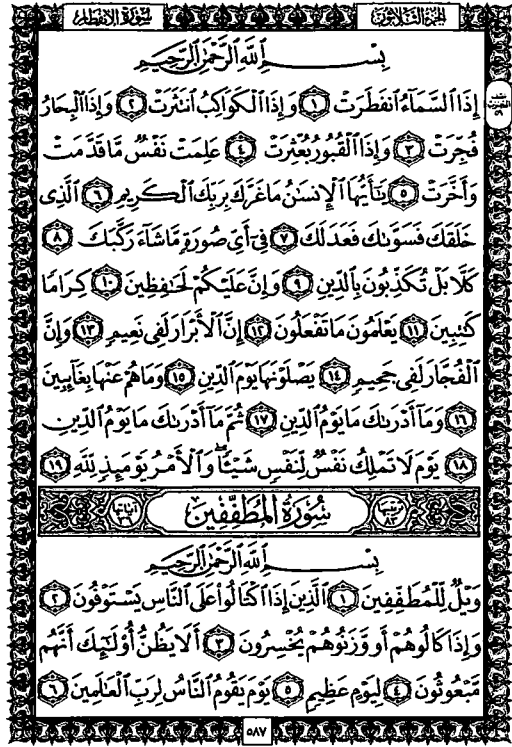 سُورَةُ الانفِطَارِ
الجُزْءُ الثَّلَاثُونَ
بِسْمِ ٱللَّهِ ٱلرَّحْمَٰنِ ٱلرَّحِيمِ
إِذَا ٱلسَّمَآءُ ٱنفَطَرَتْ ١ وَإِذَا ٱلْكَوَاكِبُ ٱنتَثَرَتْ ٢ وَإِذَا ٱلْبِحَارُ
فُجِّرَتْ ٣ وَإِذَا ٱلْقُبُورُ بُعْثِرَتْ ٤ عَلِمَتْ نَفْسٌ مَّا قَدَّمَتْ
وَأَخَّرَتْ ٥ يَٰٓأَيُّهَا ٱلْإِنسَٰنُ مَا غَرَّكَ بِرَبِّكَ ٱلْكَرِيمِ ٦ ٱلَّذِى
خَلَقَكَ فَسَوَّىٰكَ فَعَدَلَكَ ٧ فِىٓ أَىِّ صُورَةٍ مَّا شَآءَ رَكَّبَكَ ٨
كَلَّا بَلْ تُكَذِّبُونَ بِٱلدِّينِ ٩ وَإِنَّ عَلَيْكُمْ لَحَٰفِظِينَ ١٠ كِرَامًا
كَٰتِبِينَ ١١ يَعْلَمُونَ مَا تَفْعَلُونَ ١٢ إِنَّ ٱلْأَبْرَارَ لَفِى نَعِيمٍ ١٣ وَإِنَّ
ٱلْفُجَّارَ لَفِى جَحِيمٍ ١٤ يَصْلَوْنَهَا يَوْمَ ٱلدِّينِ ١٥ وَمَا هُمْ عَنْهَا بِغَآئِبِينَ
١٦ وَمَآ أَدْرَىٰكَ مَا يَوْمُ ٱلدِّينِ ١٧ ثُمَّ مَآ أَدْرَىٰكَ مَا يَوْمُ ٱلدِّينِ
١٨ يَوْمَ لَا تَمْلِكُ نَفْسٌ لِّنَفْسٍ شَيْـًٔا ۖ وَٱلْأَمْرُ يَوْمَئِذٍ لِّلَّهِ ١٩
ترتيبها ٨٣ سُورَةُ المُطَفِّفِينَ آياتها ٣٦
بِسْمِ ٱللَّهِ ٱلرَّحْمَٰنِ ٱلرَّحِيمِ
وَيْلٌ لِّلْمُطَفِّفِينَ ١ ٱلَّذِينَ إِذَا ٱكْتَالُوا۟ عَلَى ٱلنَّاسِ يَسْتَوْفُونَ ٢
وَإِذَا كَالُوهُمْ أَو وَّزَنُوهُمْ يُخْسِرُونَ ٣ أَلَا يَظُنُّ أُو۟لَٰٓئِكَ أَنَّهُم
مَّبْعُوثُونَ ٤ لِيَوْمٍ عَظِيمٍ ٥ يَوْمَ يَقُومُ ٱلنَّاسُ لِرَبِّ ٱلْعَٰلَمِينَ ٦
٥٨٧